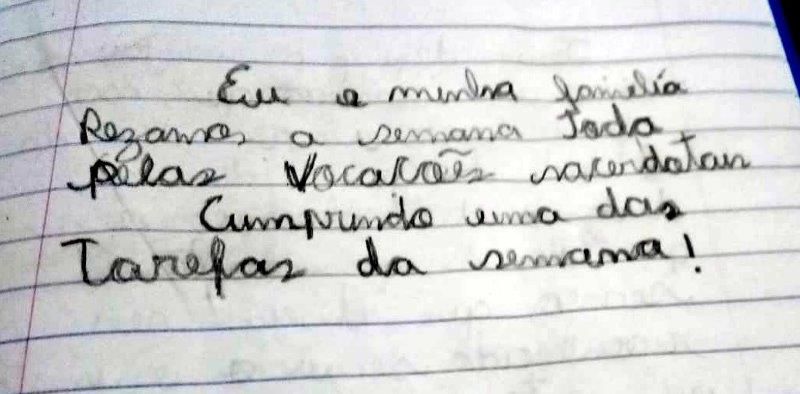 Eu e minha família
Rezamos a semana Toda
pelas Vocacões sacerdotais
Cumprindo uma das
Tarefas da semana!